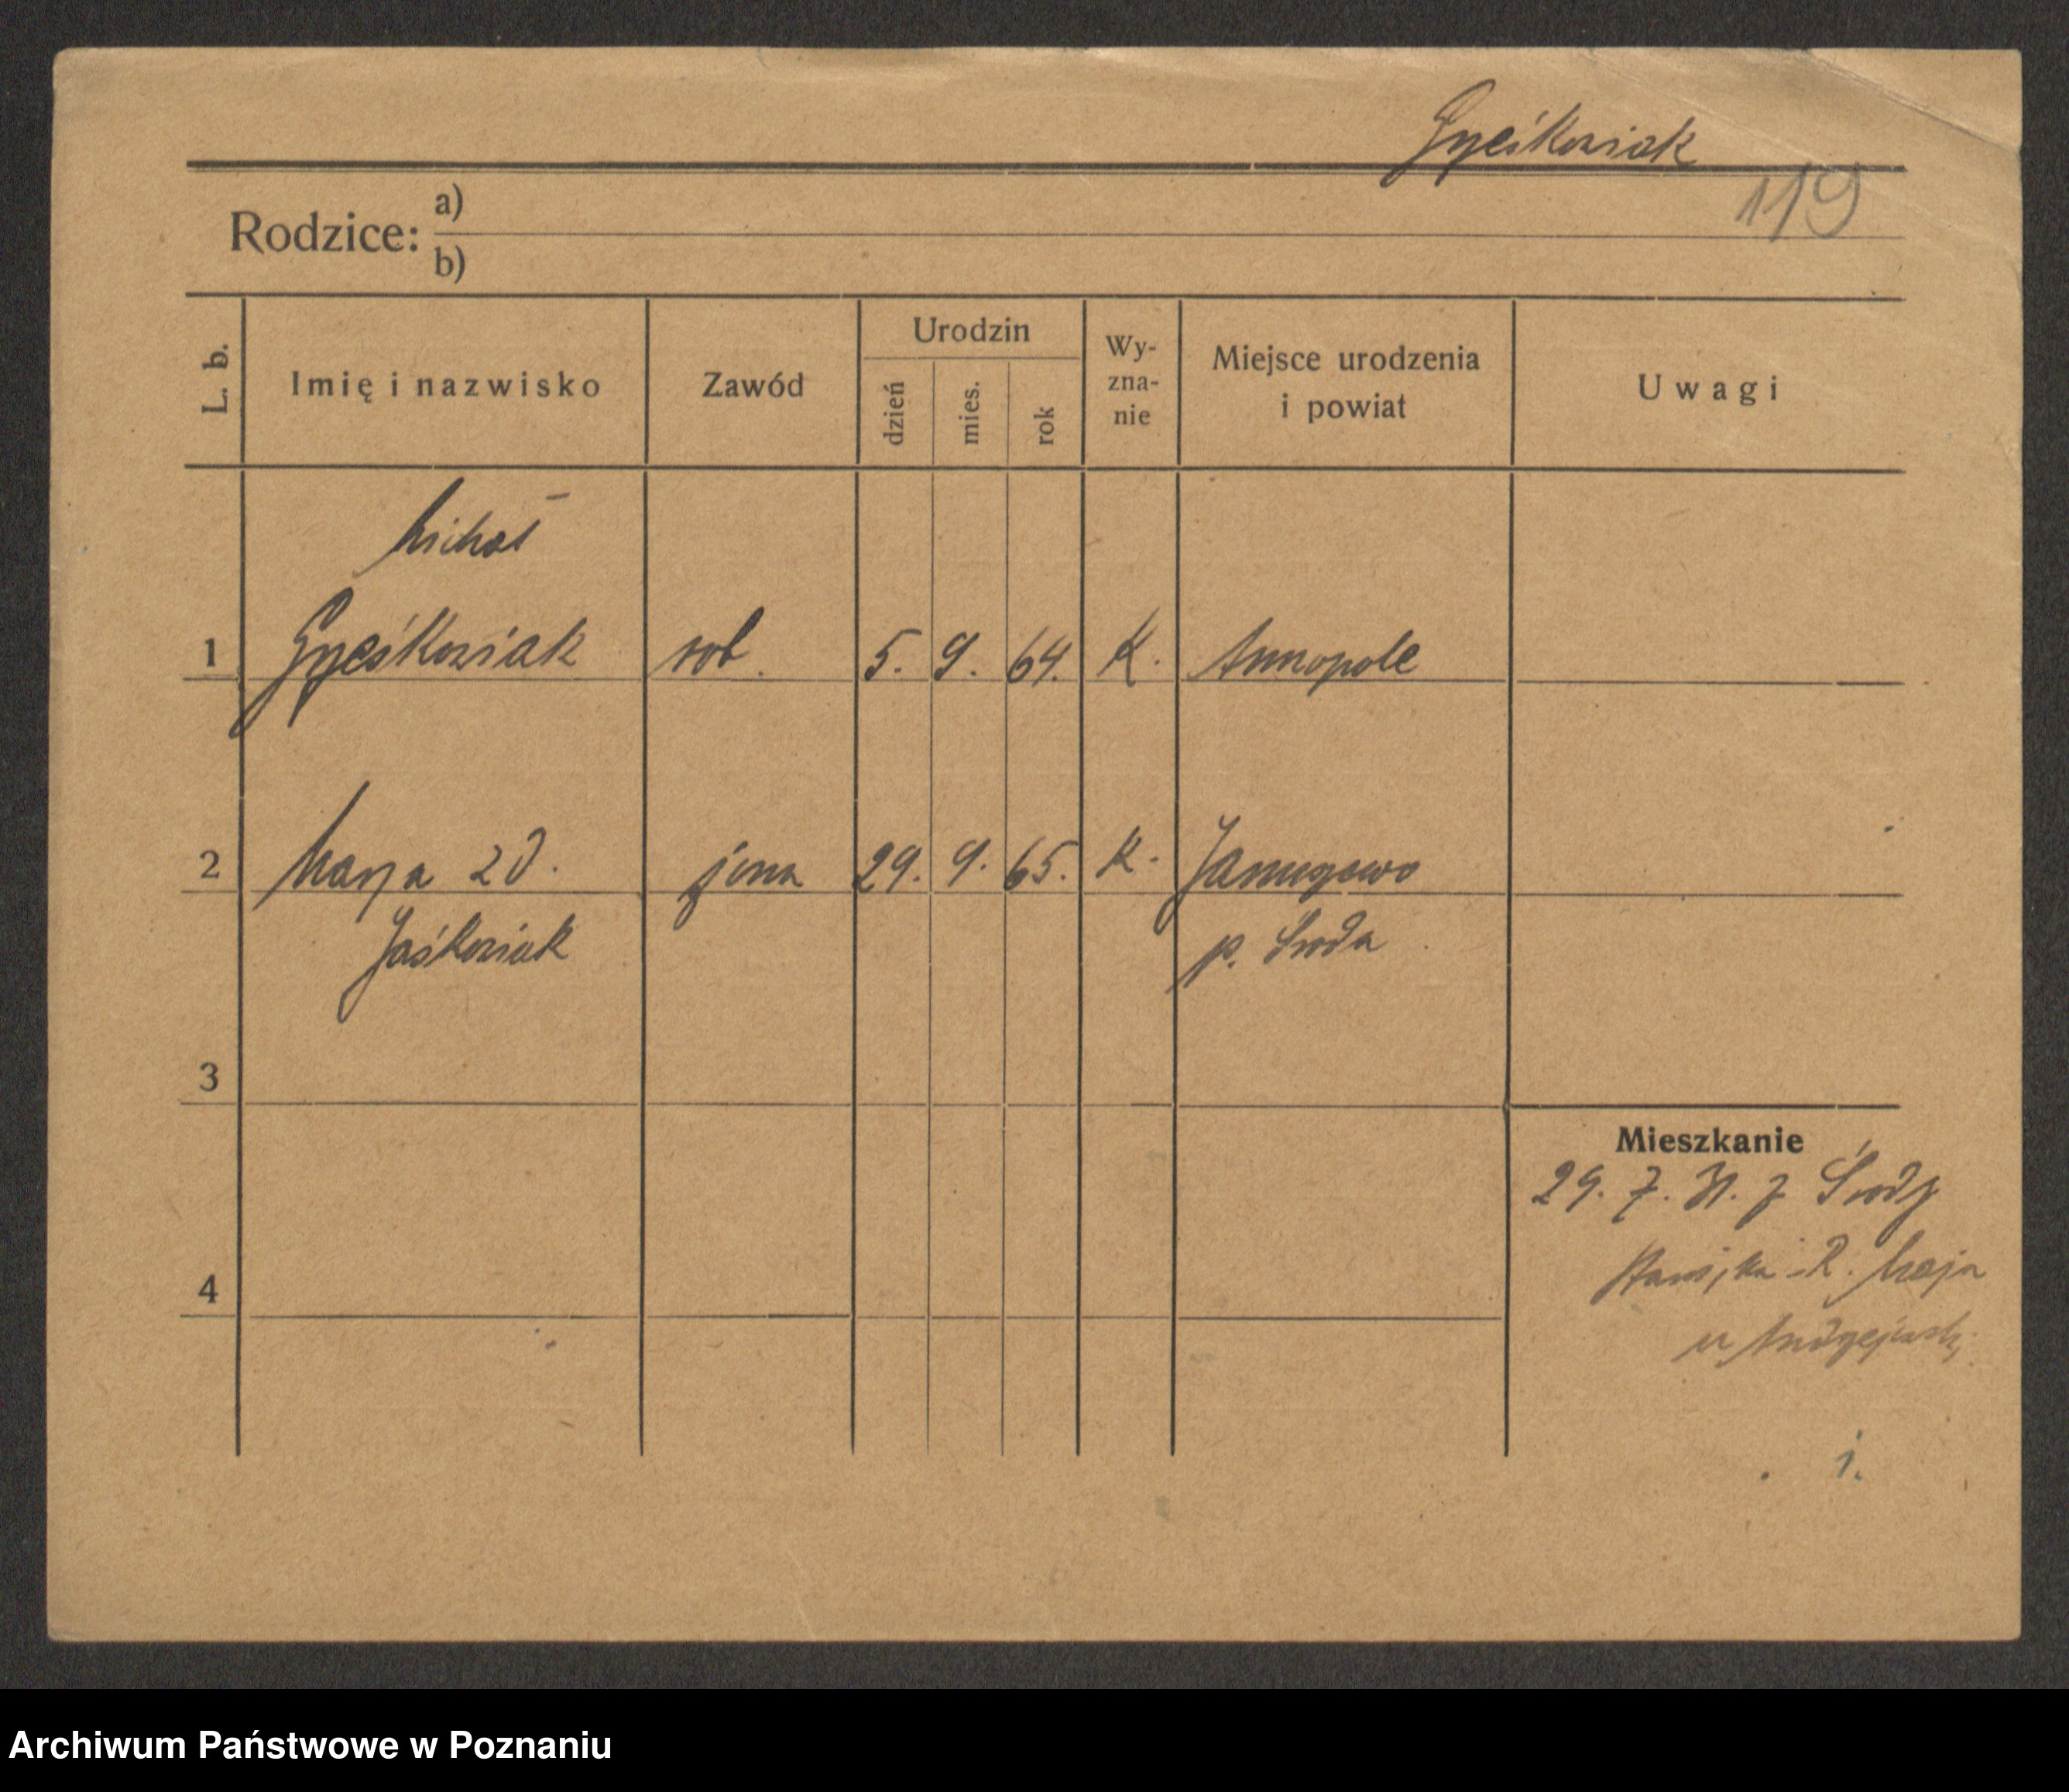 Grześkowiak
119
Rodzice: a)
b)
L. b. Imię i nazwisko Zawód Urodzin dzień mies. rok Wy-zna-nie Miejsce urodzenia i powiat Uwagi
Michał
1 Grześkowiak rob. 5. 9. 64. K. Annopole
2 Marya zd. żona 29. 9. 65. K. Januszewo
Jaśkowiak p. Środa
3
Mieszkanie
29. 7. 31. z Środy
4
Maja
u
1.
Archiwum Państwowe w Poznaniu